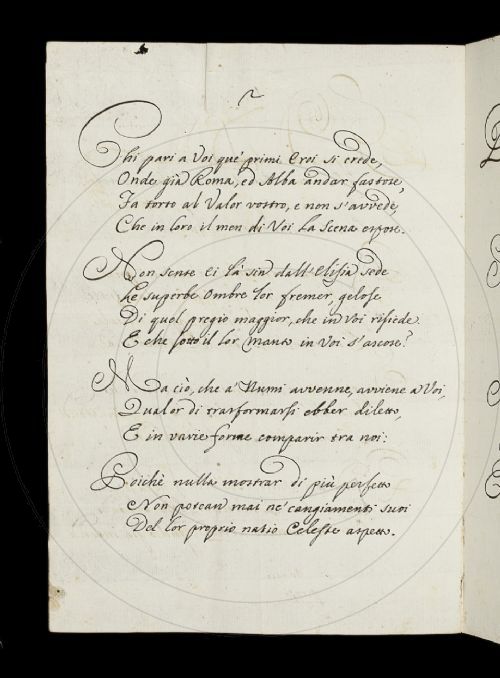 2
Chi pari a Voi que' primi Eroi si crede,
Onde già Roma, ed Alba andar fastose,
Fa torto al Valor vostro, e non s'avvede,
Che in loro il men di Voi la Scena espose.
Non sente Ei là sin dall'Elisia sede
Le superbe Ombre lor fremer, gelose
Di quel pregio maggior, che in Voi risiede
E che sotto il lor Manto in Voi s'ascose?
Ma ciò, che a' Numi avvenne, avviene a Voi,
Qualor di trasformarsi ebber diletto,
E in varie forme comparir tra noi:
Poichè nulla mostrar di più perfetto
Non potean mai ne' cangiamenti suoi
Del lor proprio natio Celeste aspetto.